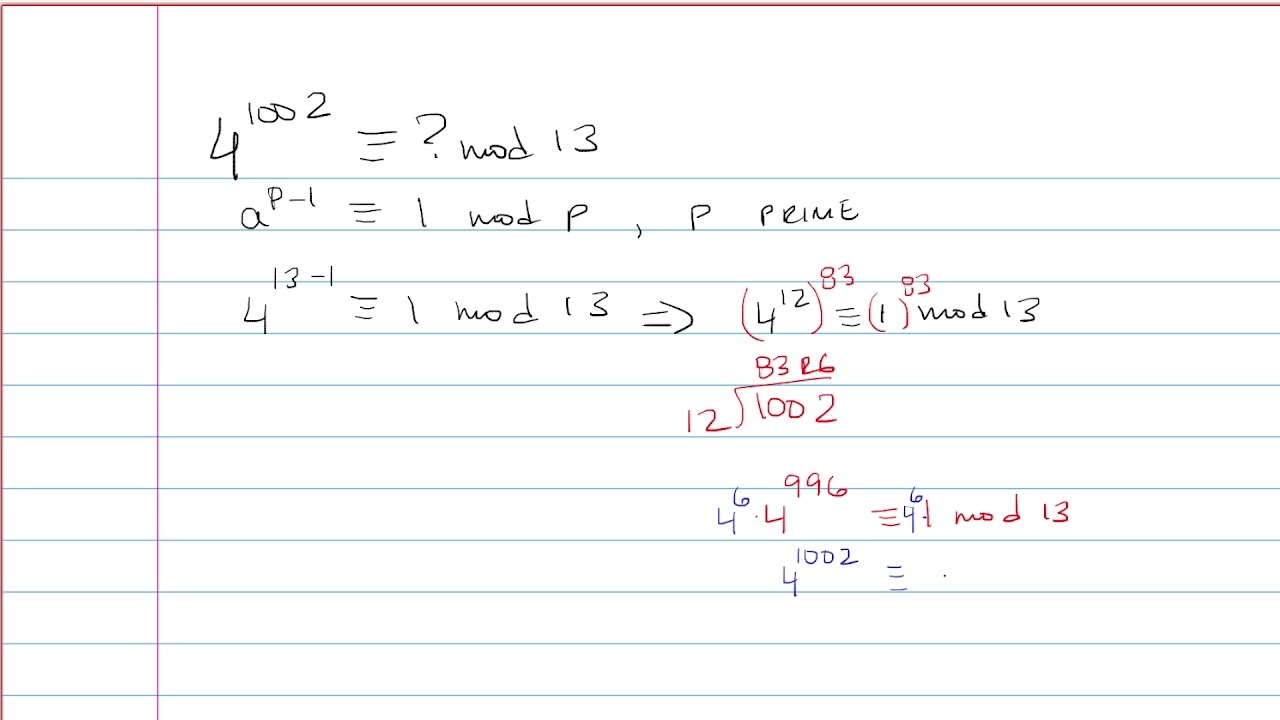 4^1002 ≡ ? mod 13
a^p-1 ≡ 1 mod p , p PRIME
4^13-1 ≡ 1 mod 13 ⇒ (4^12)^83 ≡ (1)^83 mod 13
83 R6
12 ) 1002
4^6 · 4^996 ≡ 4^6 · 1 mod 13
4^1002 ≡ .